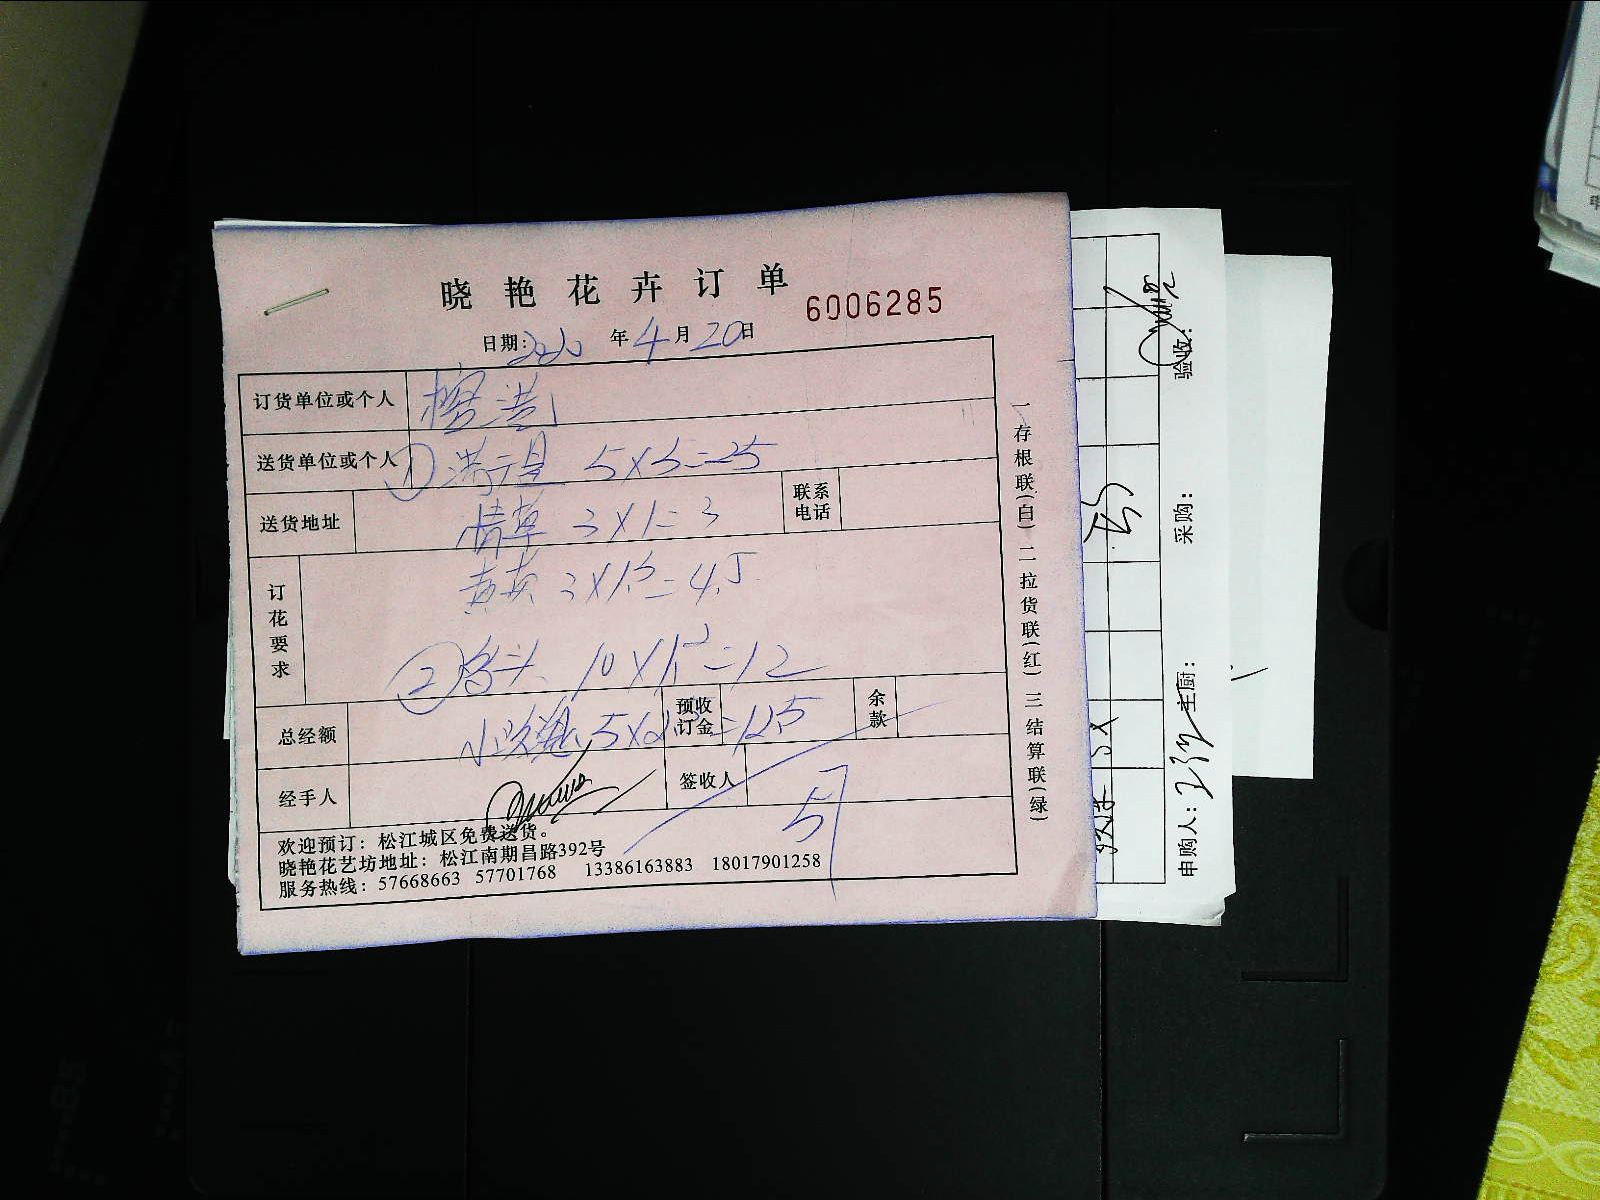 晓艳花卉订单
6006285
日期: 2020年4月20日
订货单位或个人
送货单位或个人 ① 满天星 5×5=25
送货地址 情草 3×1=3 联系电话
订花要求 黄英 3×1.5=4.5
② 10×1.2=12
总经额 小玫瑰 5×2.5=12.5 预收订金 余款
经手人 签收人
57
欢迎预订: 松江城区免费送货。
晓艳花艺坊地址: 松江南期昌路392号
服务热线: 57668663 57701768 13386163883 18017901258
一存根联(白) 二拉货联(红) 三结算联(绿)
申购人: 主厨: 采购: 验收: